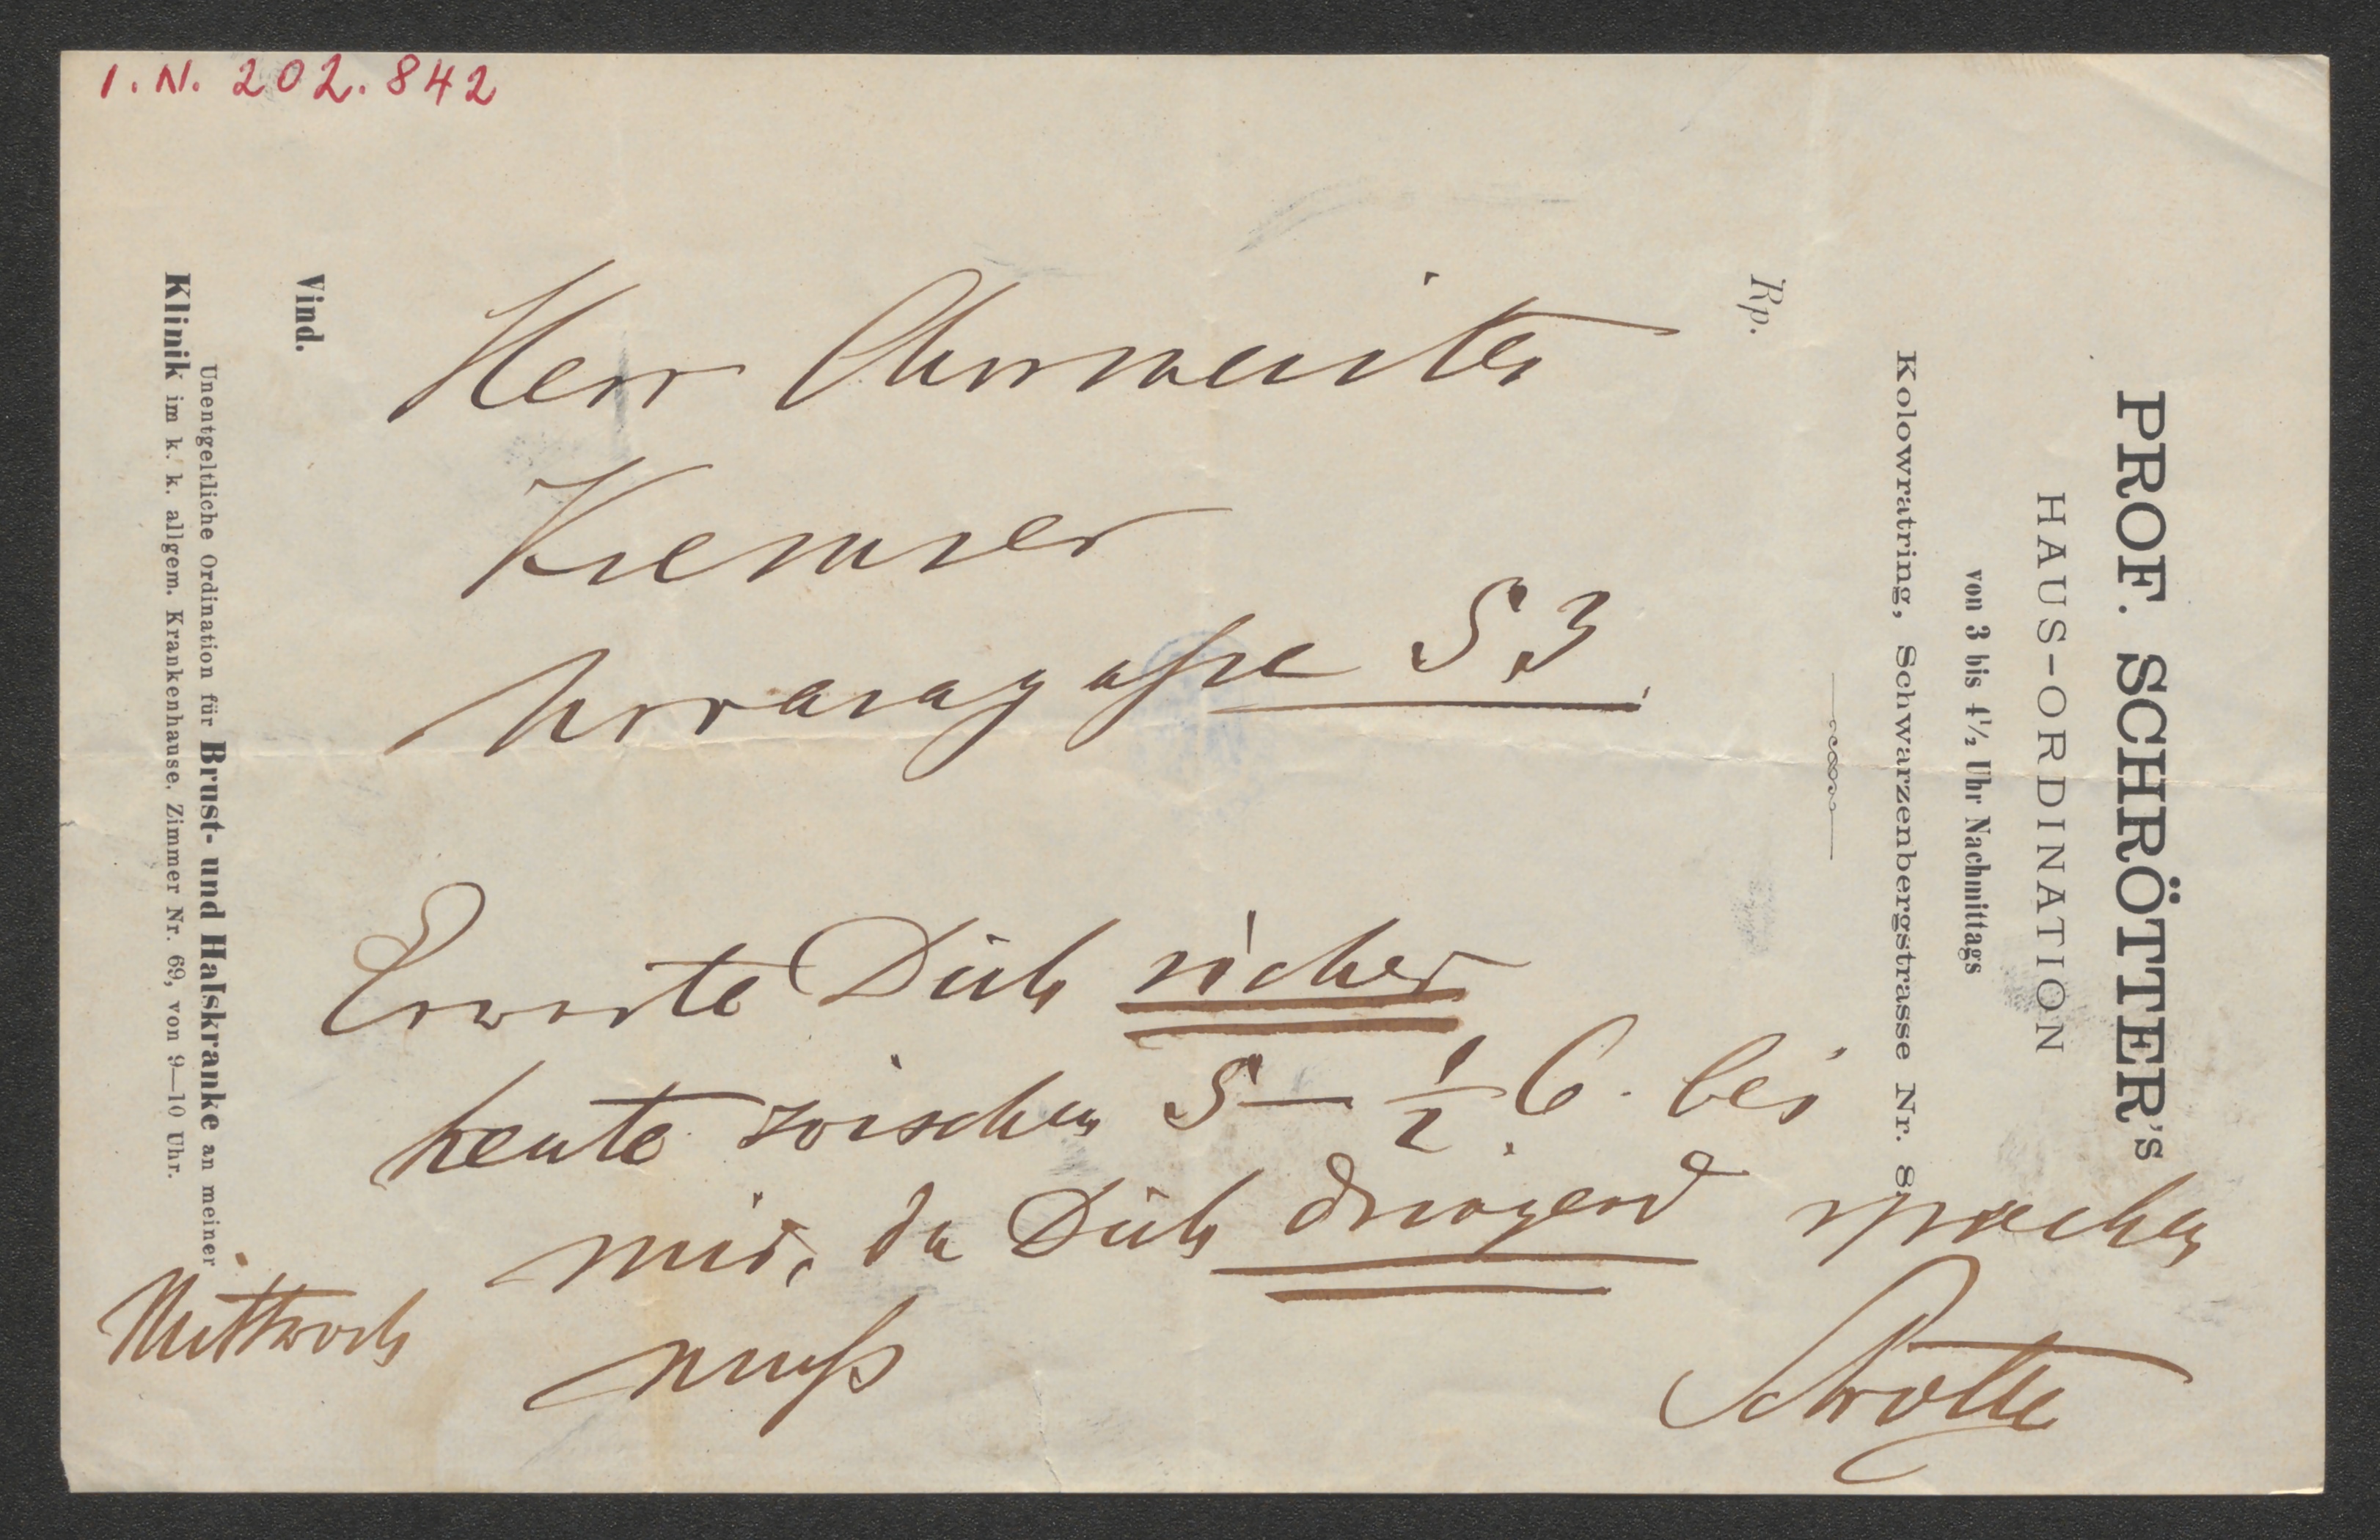 I. N. 202.842
PROF. SCHRÖTTER'S
HAUS-ORDINATION
von 3 bis 4½ Uhr Nachmittags
Kolowratring, Schwarzenbergstrasse Nr. 8.
Rp.
Herr Chormeister
Kremser
53
Erwarte Dich sicher
heute zwischen 5 — ½ 6. bei
mir, da Dich dringend sprechen
muß
Mittwoch
Schrötter
Vind.
Unentgeltliche Ordination für Brust- und Halskranke an meiner
Klinik im k. k. allgem. Krankenhause, Zimmer Nr. 69, von 9—10 Uhr.